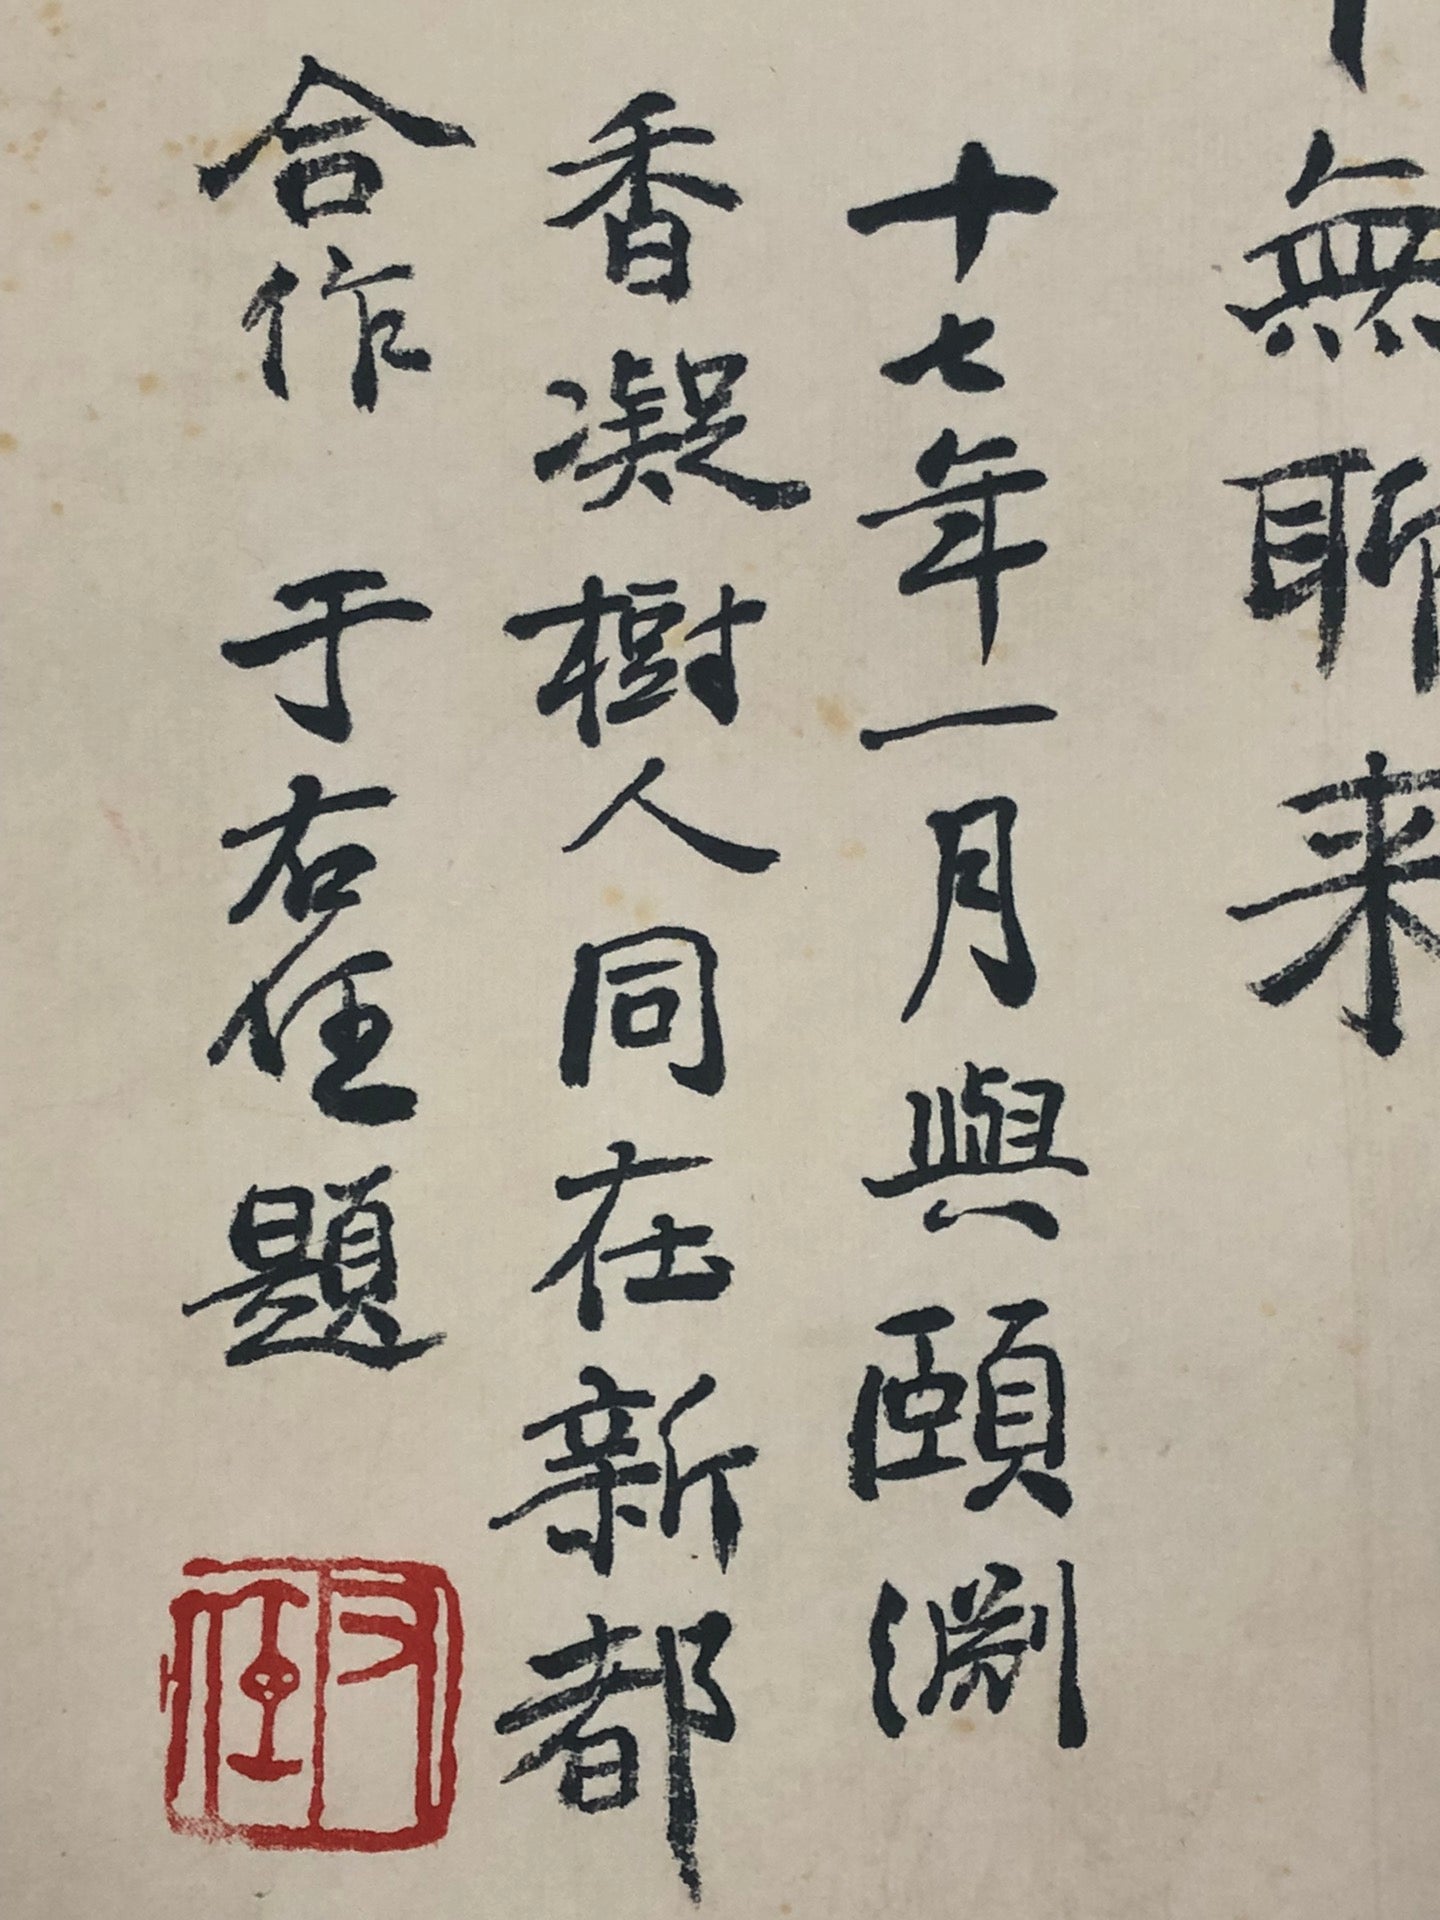 無聊来
十七年一月與頤淵
香凝樹人同在新都
合作 于右任題
右任